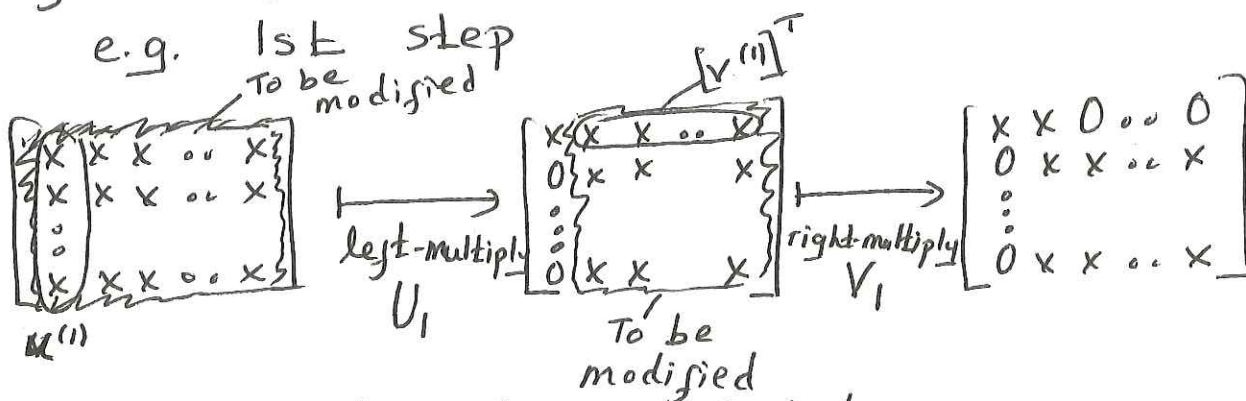 e.g. 1st step
To be modified
[v^(1)]^T
x x x .. x
x x x .. x
x x x .. x
u^(1)
left-multiply
U_1
x x x .. x
0 x x x
0 x x x
To be modified
right-multiply
V_1
x x 0 .. 0
0 x x .. x
0 x x .. x